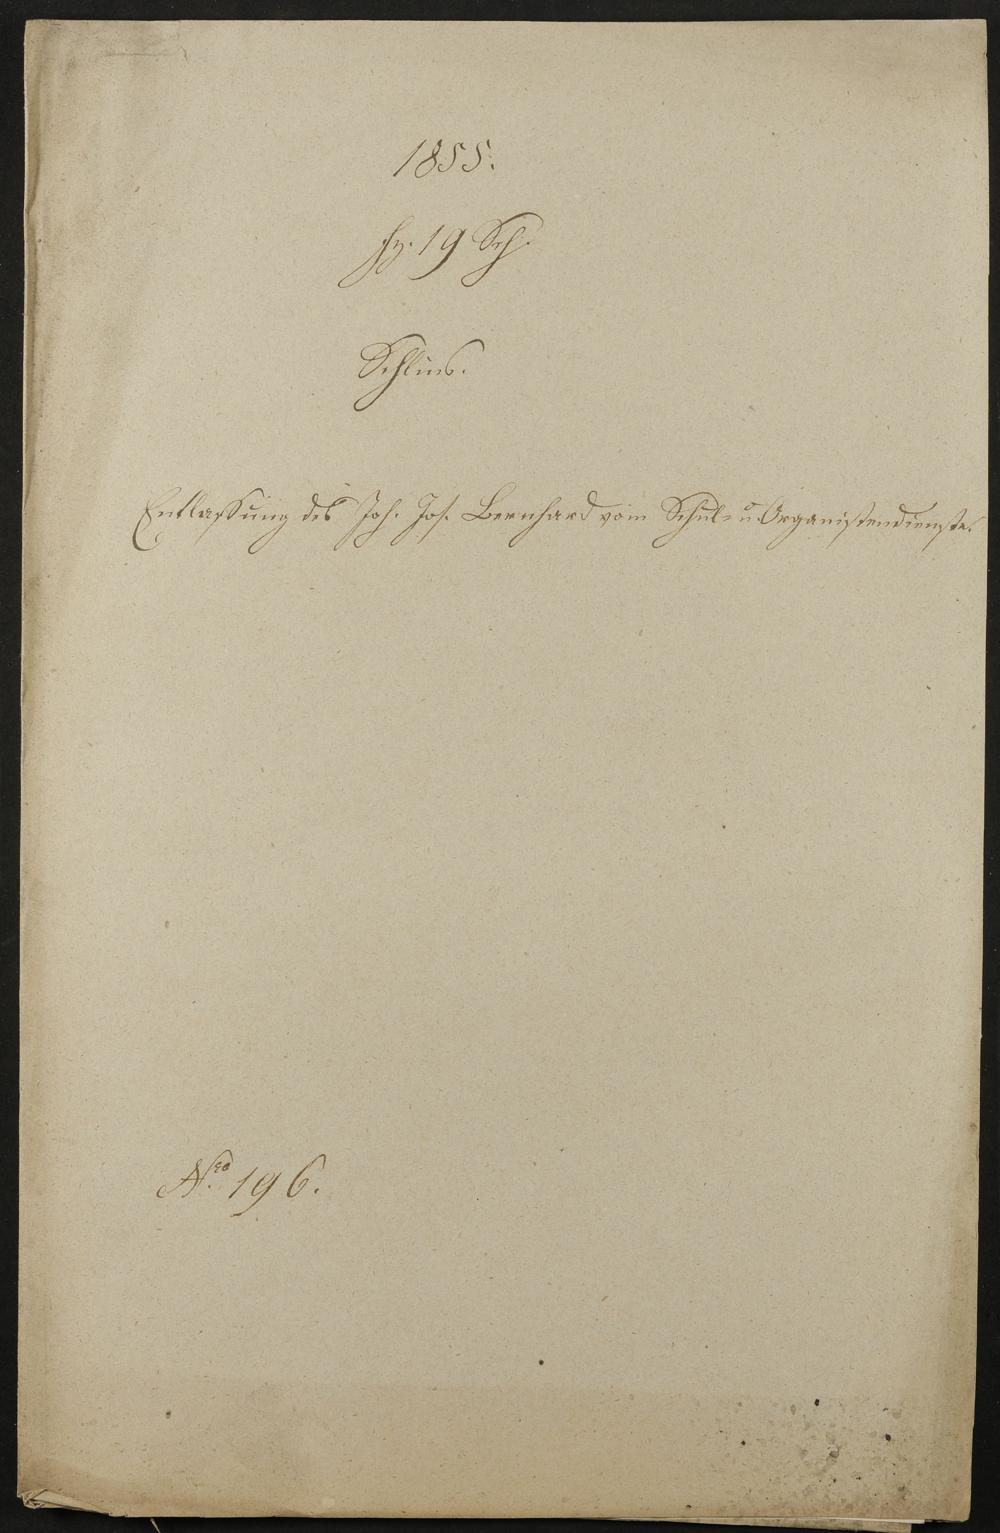 1855.
19 Sch.
Schlins.
Entlassung des Joh. Jos. Bernhard vom Schul- u. Organistendienste.
Nro 196.